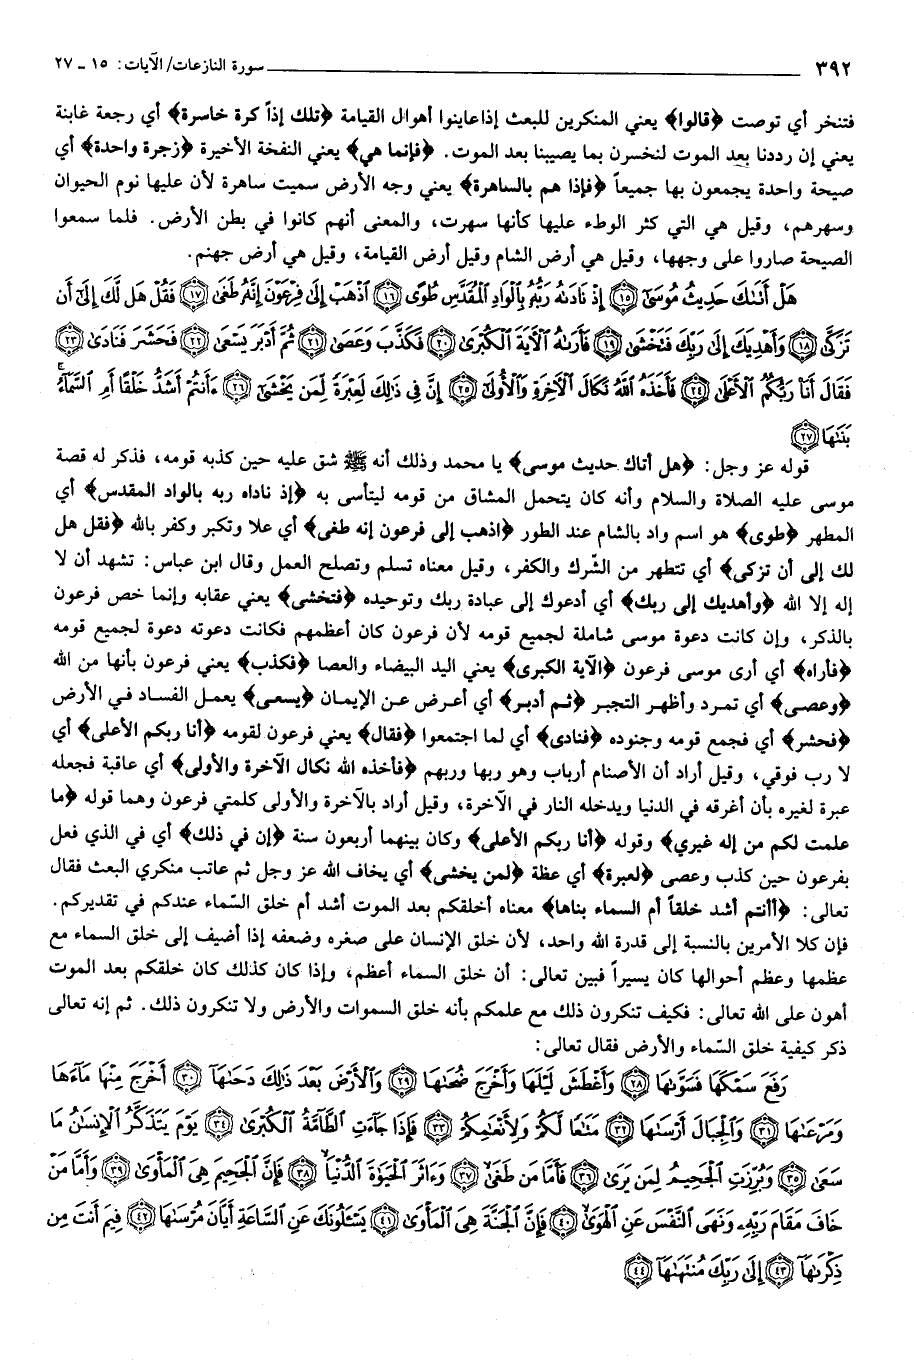 ٣٩٢ سورة النازعات/ الآيات: ١٥ ـ ٢٧
فتنخر أي توصت ﴿قالوا﴾ يعني المنكرين للبعث إذا عاينوا أهوال القيامة ﴿تلك إذاً كرة خاسرة﴾ أي رجعة غابنة
يعني إن رددنا بعد الموت لنخسرن بما يصيبنا بعد الموت. ﴿فإنما هي﴾ يعني النفخة الأخيرة ﴿زجرة واحدة﴾ أي
صيحة واحدة يجمعون بها جميعاً ﴿فإذا هم بالساهرة﴾ يعني وجه الأرض سميت ساهرة لأن عليها نوم الحيوان
وسهرهم، وقيل هي التي كثر الوطء عليها كأنها سهرت، والمعنى أنهم كانوا في بطن الأرض. فلما سمعوا
الصيحة صاروا على وجهها، وقيل هي أرض الشام وقيل أرض القيامة، وقيل هي أرض جهنم.
هَلْ أَتَىٰكَ حَدِيثُ مُوسَىٰٓ ﴿١٥﴾ إِذْ نَادَىٰهُ رَبُّهُۥ بِٱلْوَادِ ٱلْمُقَدَّسِ طُوًى ﴿١٦﴾ ٱذْهَبْ إِلَىٰ فِرْعَوْنَ إِنَّهُۥ طَغَىٰ ﴿١٧﴾ فَقُلْ هَل لَّكَ إِلَىٰٓ أَن
تَزَكَّىٰ ﴿١٨﴾ وَأَهْدِيَكَ إِلَىٰ رَبِّكَ فَتَخْشَىٰ ﴿١٩﴾ فَأَرَىٰهُ ٱلْآيَةَ ٱلْكُبْرَىٰ ﴿٢٠﴾ فَكَذَّبَ وَعَصَىٰ ﴿٢١﴾ ثُمَّ أَدْبَرَ يَسْعَىٰ ﴿٢٢﴾ فَحَشَرَ فَنَادَىٰ ﴿٢٣﴾
فَقَالَ أَنَا۠ رَبُّكُمُ ٱلْأَعْلَىٰ ﴿٢٤﴾ فَأَخَذَهُ ٱللَّهُ نَكَالَ ٱلْآخِرَةِ وَٱلْأُولَىٰٓ ﴿٢٥﴾ إِنَّ فِى ذَٰلِكَ لَعِبْرَةً لِّمَن يَخْشَىٰٓ ﴿٢٦﴾ ءَأَنتُمْ أَشَدُّ خَلْقًا أَمِ ٱلسَّمَآءُ ۚ
بَنَىٰهَا ﴿٢٧﴾
قوله عز وجل: ﴿هل أتاك حديث موسى﴾ يا محمد وذلك أنه ﷺ شق عليه حين كذبه قومه، فذكر له قصة
موسى عليه الصلاة والسلام وأنه كان يتحمل المشاق من قومه ليتأسى به ﴿إذ ناداه ربه بالواد المقدس﴾ أي
المطهر ﴿طوى﴾ هو اسم واد بالشام عند الطور ﴿اذهب إلى فرعون إنه طغى﴾ أي علا وتكبر وكفر بالله ﴿فقل هل
لك إلى أن تزكى﴾ أي تتطهر من الشّرك والكفر، وقيل معناه تسلم وتصلح العمل وقال ابن عباس: تشهد أن لا
إله إلا الله ﴿وأهديك إلى ربك﴾ أي أدعوك إلى عبادة ربك وتوحيده ﴿فتخشى﴾ يعني عقابه وإنما خص فرعون
بالذكر، وإن كانت دعوة موسى شاملة لجميع قومه لأن فرعون كان أعظمهم فكانت دعوته دعوة لجميع قومه
﴿فأراه﴾ أي أرى موسى فرعون ﴿الآية الكبرى﴾ يعني اليد البيضاء والعصا ﴿فكذب﴾ يعني فرعون بأنها من الله
﴿وعصى﴾ أي تمرد وأظهر التجبر ﴿ثم أدبر﴾ أي أعرض عن الإيمان ﴿يسعى﴾ يعمل الفساد في الأرض
﴿فحشر﴾ أي فجمع قومه وجنوده ﴿فنادى﴾ أي لما اجتمعوا ﴿فقال﴾ يعني فرعون لقومه ﴿أنا ربكم الأعلى﴾ أي
لا رب فوقي، وقيل أراد أن الأصنام أرباب وهو ربها وربهم ﴿فأخذه الله نكال الآخرة والأولى﴾ أي عاقبة فجعله
عبرة لغيره بأن أغرقه في الدنيا ويدخله النار في الآخرة، وقيل أراد بالآخرة والأولى كلمتي فرعون وهما قوله ﴿ما
علمت لكم من إله غيري﴾ وقوله ﴿أنا ربكم الأعلى﴾ وكان بينهما أربعون سنة ﴿إن في ذلك﴾ أي في الذي فعل
بفرعون حين كذب وعصى ﴿لعبرة﴾ أي عظة ﴿لمن يخشى﴾ أي يخاف الله عز وجل ثم عاتب منكري البعث فقال
تعالى: ﴿أأنتم أشد خلقاً أم السماء بناها﴾ معناه أخلقكم بعد الموت أشد أم خلق السّماء عندكم في تقديركم.
فإن كلا الأمرين بالنسبة إلى قدرة الله واحد، لأن خلق الإنسان على صغره وضعفه إذا أضيف إلى خلق السماء مع
عظمها وعظم أحوالها كان يسيراً فبين تعالى: أن خلق السماء أعظم، وإذا كان كذلك كان خلقكم بعد الموت
أهون على الله تعالى: فكيف تنكرون ذلك مع علمكم بأنه خلق السموات والأرض ولا تنكرون ذلك. ثم إنه تعالى
ذكر كيفية خلق السّماء والأرض فقال تعالى:
رَفَعَ سَمْكَهَا فَسَوَّىٰهَا ﴿٢٨﴾ وَأَغْطَشَ لَيْلَهَا وَأَخْرَجَ ضُحَىٰهَا ﴿٢٩﴾ وَٱلْأَرْضَ بَعْدَ ذَٰلِكَ دَحَىٰهَآ ﴿٣٠﴾ أَخْرَجَ مِنْهَا مَآءَهَا
وَمَرْعَىٰهَا ﴿٣١﴾ وَٱلْجِبَالَ أَرْسَىٰهَا ﴿٣٢﴾ مَتَٰعًا لَّكُمْ وَلِأَنْعَٰمِكُمْ ﴿٣٣﴾ فَإِذَا جَآءَتِ ٱلطَّآمَّةُ ٱلْكُبْرَىٰ ﴿٣٤﴾ يَوْمَ يَتَذَكَّرُ ٱلْإِنسَٰنُ مَا
سَعَىٰ ﴿٣٥﴾ وَبُرِّزَتِ ٱلْجَحِيمُ لِمَن يَرَىٰ ﴿٣٦﴾ فَأَمَّا مَن طَغَىٰ ﴿٣٧﴾ وَءَاثَرَ ٱلْحَيَوٰةَ ٱلدُّنْيَا ﴿٣٨﴾ فَإِنَّ ٱلْجَحِيمَ هِىَ ٱلْمَأْوَىٰ ﴿٣٩﴾ وَأَمَّا مَنْ
خَافَ مَقَامَ رَبِّهِۦ وَنَهَى ٱلنَّفْسَ عَنِ ٱلْهَوَىٰ ﴿٤٠﴾ فَإِنَّ ٱلْجَنَّةَ هِىَ ٱلْمَأْوَىٰ ﴿٤١﴾ يَسْـَٔلُونَكَ عَنِ ٱلسَّاعَةِ أَيَّانَ مُرْسَىٰهَا ﴿٤٢﴾ فِيمَ أَنتَ مِن
ذِكْرَىٰهَآ ﴿٤٣﴾ إِلَىٰ رَبِّكَ مُنتَهَىٰهَآ ﴿٤٤﴾